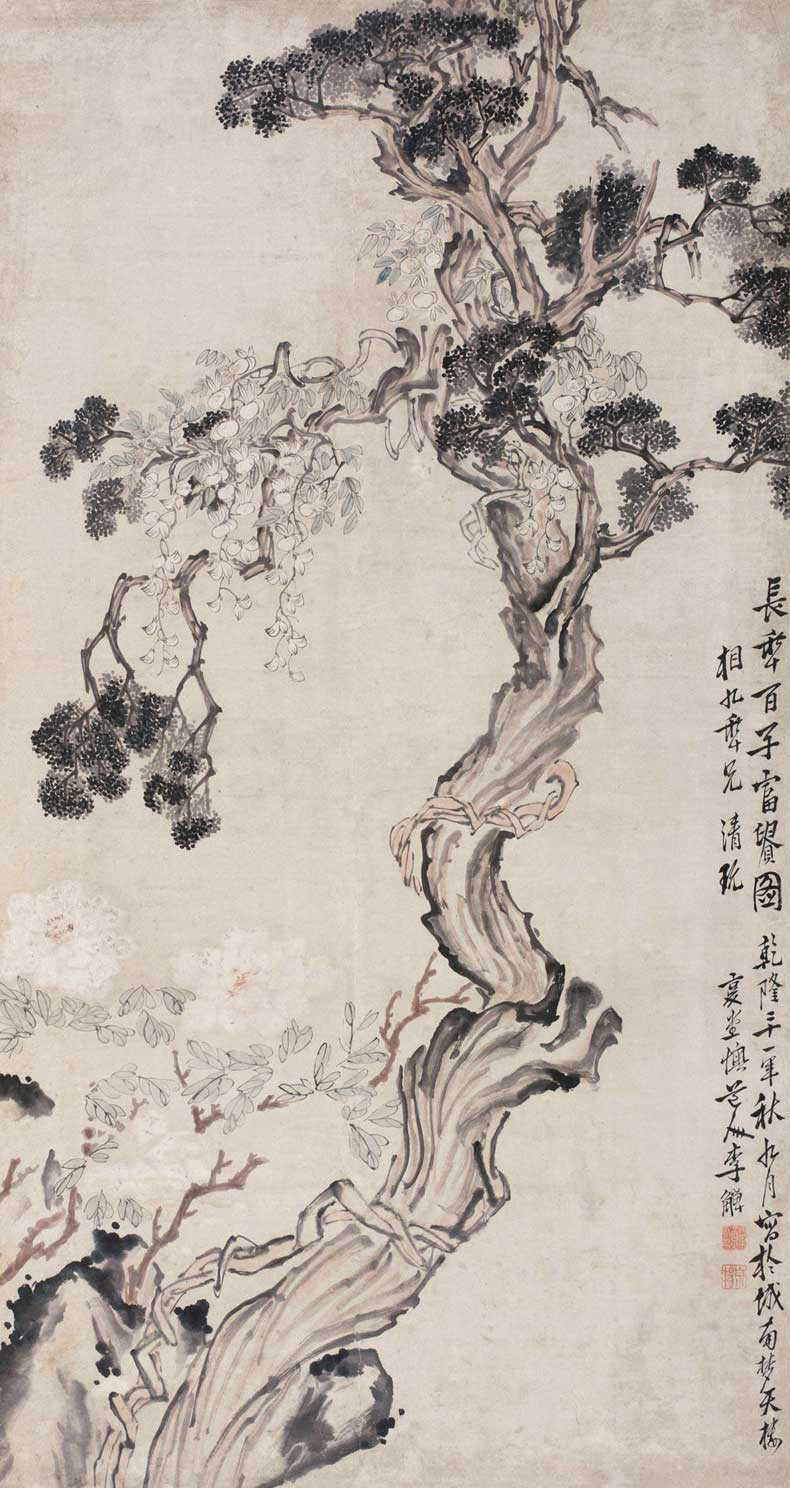 長秊百子富貴圖 乾隆二十一年秋九月寫於城南梦天楼
相九秊兄清玩 復堂懊道人李鱓